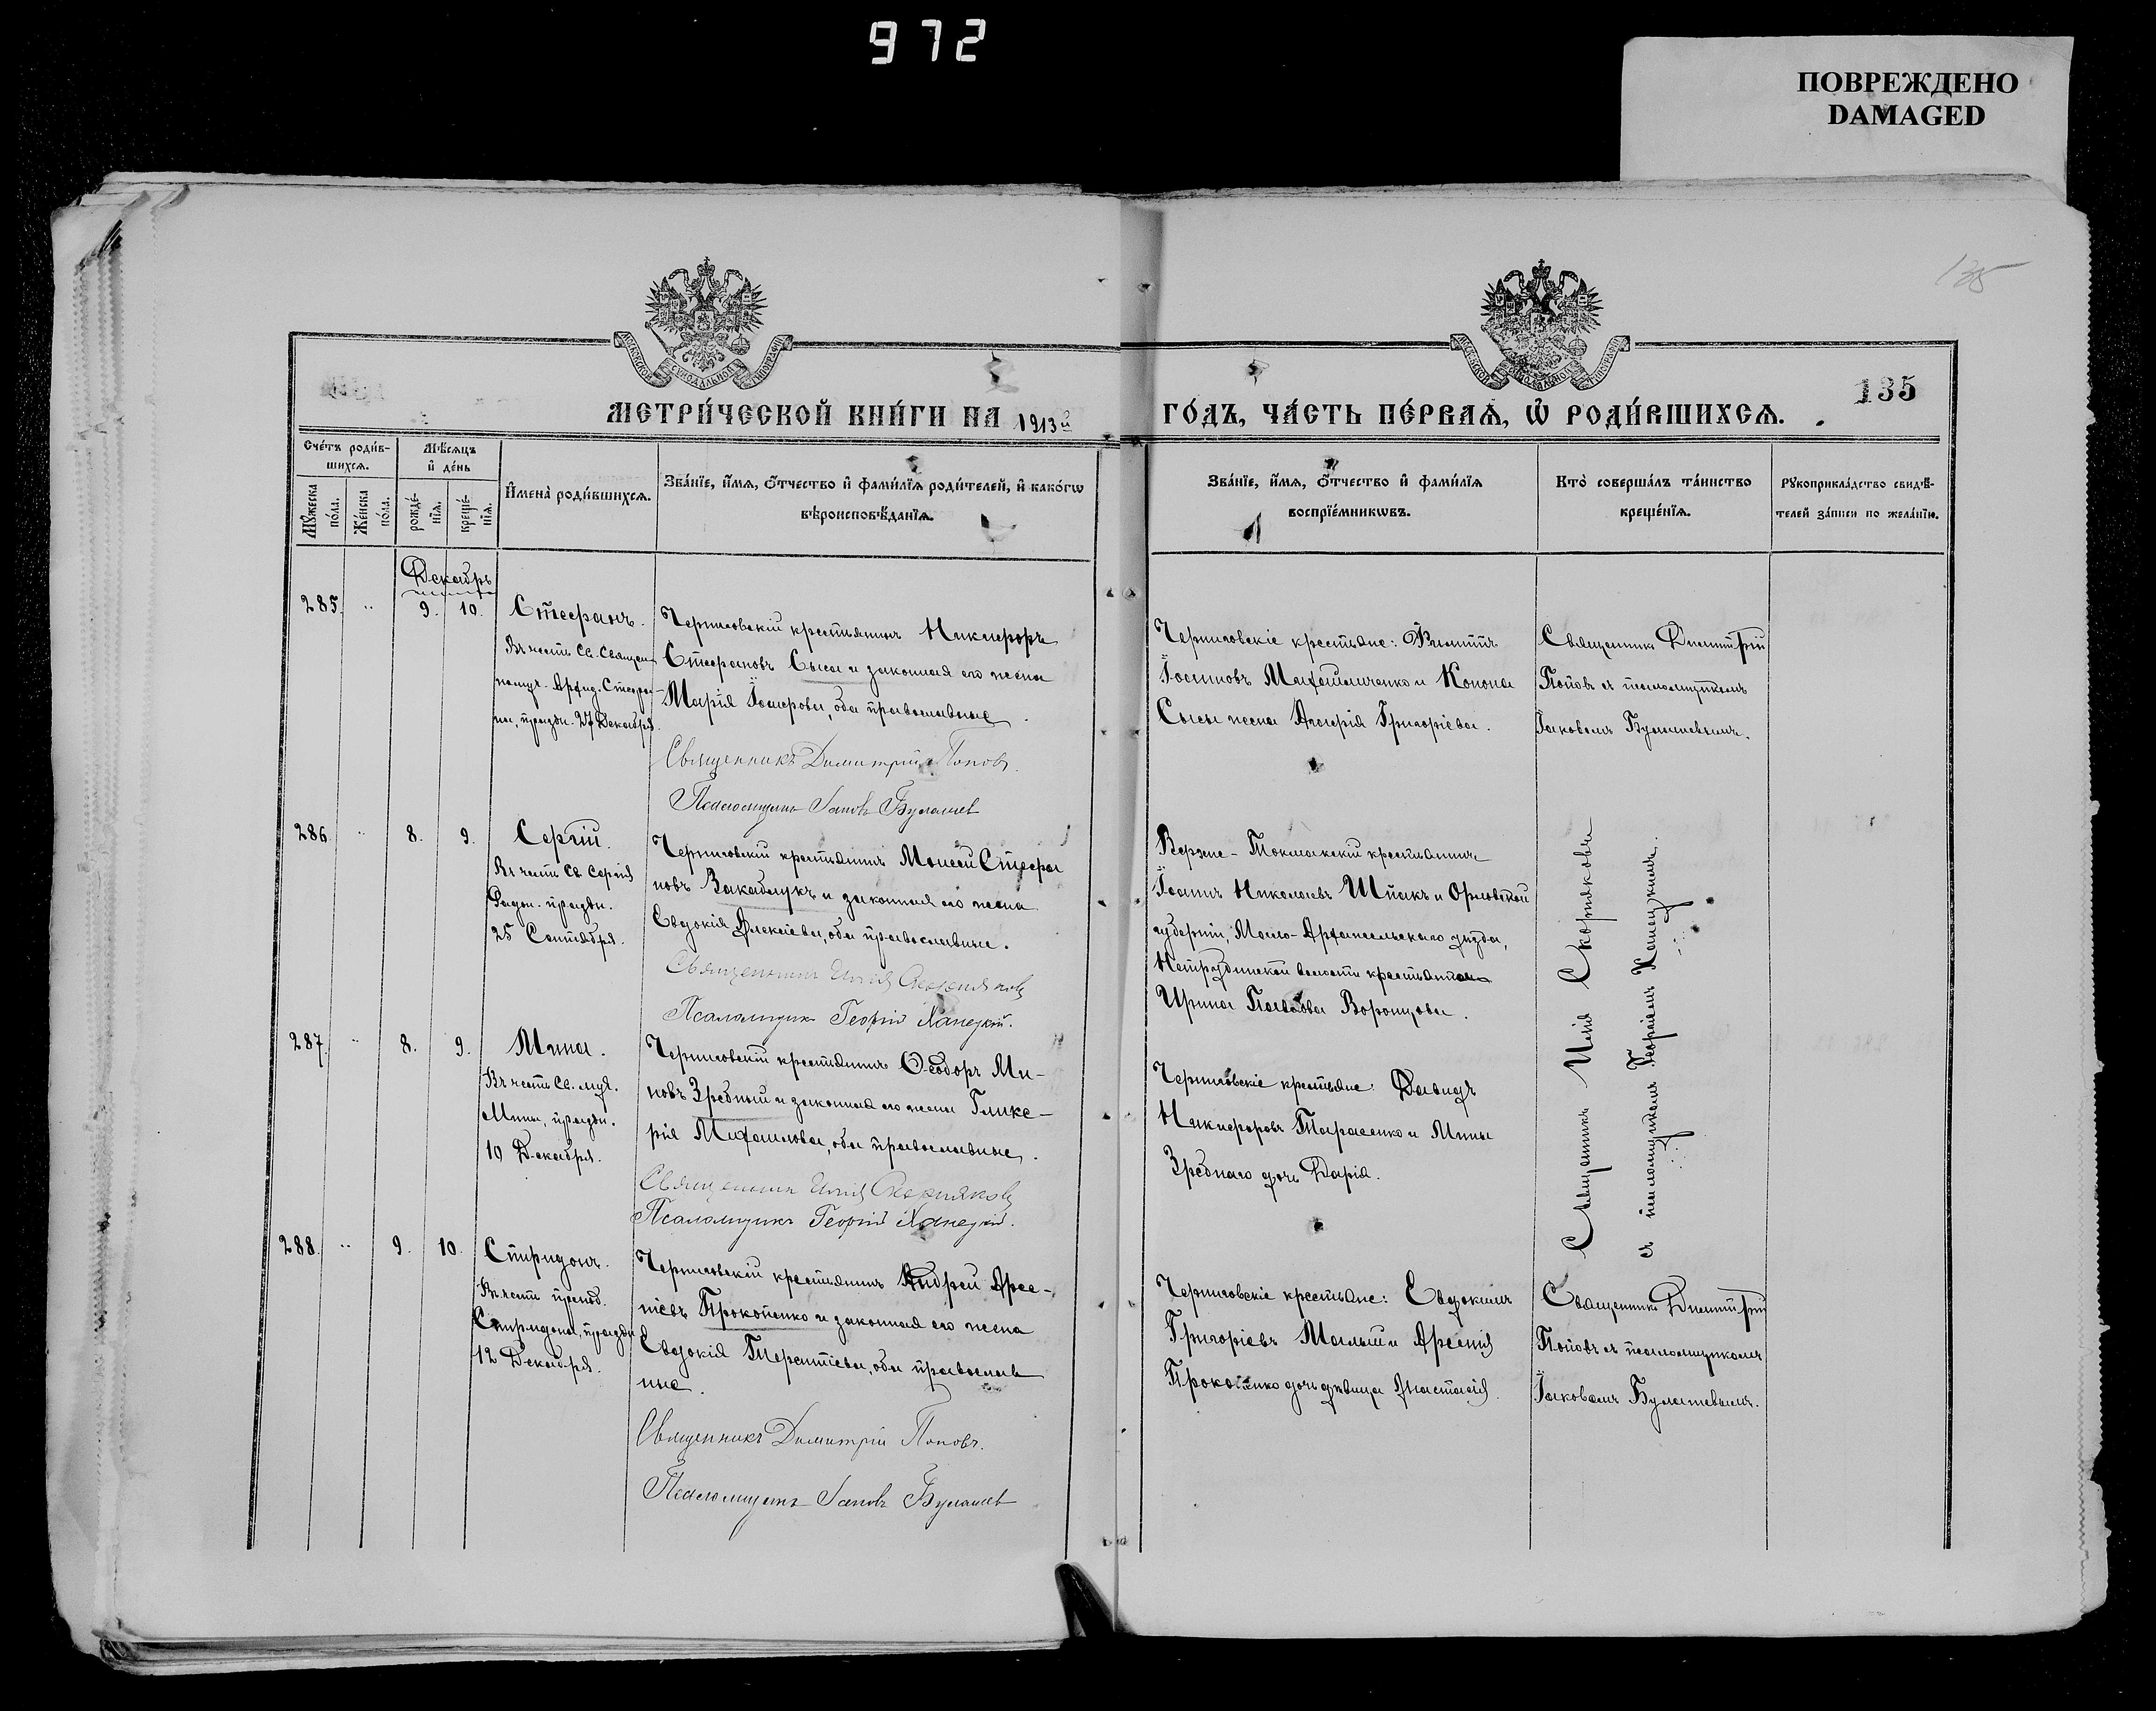 972
ПОВРЕЖДЕНО
DAMAGED
135
135
МОСКОВСКОЙ СѴНОДАЛЬНОЙ ТИПОГРАФІИ
МОСКОВСКОЙ СѴНОДАЛЬНОЙ ТИПОГРАФІИ
МЕТРИ́ЧЕСКОЙ КНИ́ГИ НА 1913й
ГО́ДЪ, ЧА́СТЬ ПЕ́РВАѦ, Ѽ РОДИ́ВШИХСѦ.
Сче́тъ роди́в-
шихсѧ.
Мѣ́сѧцъ
и҆ де́нь
Мꙋ́жеска
по́ла.
Же́нска
по́ла.
рожде́-
нїѧ.
креще́-
нїѧ.
И҆мена̀ роди́вшихсѧ.
Зва́нїе, и҆́мѧ, ѻ҆́тчество и҆ фами́лїѧ роди́телей, и҆ како́гѡ
вѣроисповѣ́данїѧ.
Зва́нїе, и҆́мѧ, ѻ҆́тчество и҆ фами́лїѧ
воспрїе́мникѡвъ.
Кто̀ соверша́лъ та́инство
креще́нїѧ.
Рꙋкоприкла́дство свидѣ́-
телей за́писи по жела́нїю.
Декабрь
285. " 9. 10. Стефанъ.
Въ честь Св. Священ
номуч. Архид. Стефа-
на, праздн. 27 Декабря.
Черниговскій крестьянинъ Никифоръ
Стефановъ Сыса и законная его жена
Марія, оба православные.
Священникъ Димитрій Поповъ.
Псаломщикъ Іаковъ Булашев
Черниговскіе крестьяне: Филиппъ
Іоанновъ и Конона
Сысы жена Григоріева.
Священникъ Димитрій
Поповъ съ псаломщикомъ
Іаковомъ Булашевымъ.
286. " 8. 9. Сергій.
Въ честь Св. Сергія
Радон. праздн.
25 Сентября.
Черниговскій крестьянинъ Моисей Стефа
новъ Закаблукъ и законная его жена
Евдокія Алексіева, оба православные.
Священникъ Илія Скорняковъ
Псаломщик Георгій Ханецкій.
Верхне-Токмакскій крестьянинъ
Іоаннъ Николаевъ Шпакъ и Орловской
губерніи, Мало-Архангельскаго уѣзда,
волости крестьянка
Ирина Павлова Воронцова.
Священникъ Илія Скорняковъ
съ псаломщикомъ Георгіемъ Ханецкимъ.
287. " 8. 9. Мина.
Въ честь Св. муч.
Мины, праздн.
10 Декабря.
Черниговскій крестьянинъ Ѳеодоръ Ми-
новъ Зрѣбный и законная его жена Глике-
рія Михаилова, оба православные.
Священникъ Илія Скорняковъ
Псаломщикъ Георгій Ханецкій.
Черниговскіе крестьяне: Давидъ
Никифоровъ Тарасенко и Мины
Зрѣбнаго дочь Дарія.
288. " 9. 10. Спиридонъ.
Въ честь препод.
Спиридона, праздн
12 Декабря.
Черниговскій крестьянинъ Андрей Арсе-
ніевъ Прокопенко и законная его жена
Евдокія Терентіева, оба православ
ные.
Священникъ Димитрій Поповъ.
Псаломщикъ Іаковъ Булашев
Черниговскіе крестьяне: Евдокимъ
Григоріевъ Малыш и Арсенія
Прокопенко дочь дѣвица Анастасія.
Священникъ Димитрій
Поповъ съ псаломщикомъ
Іаковомъ Булашевымъ.